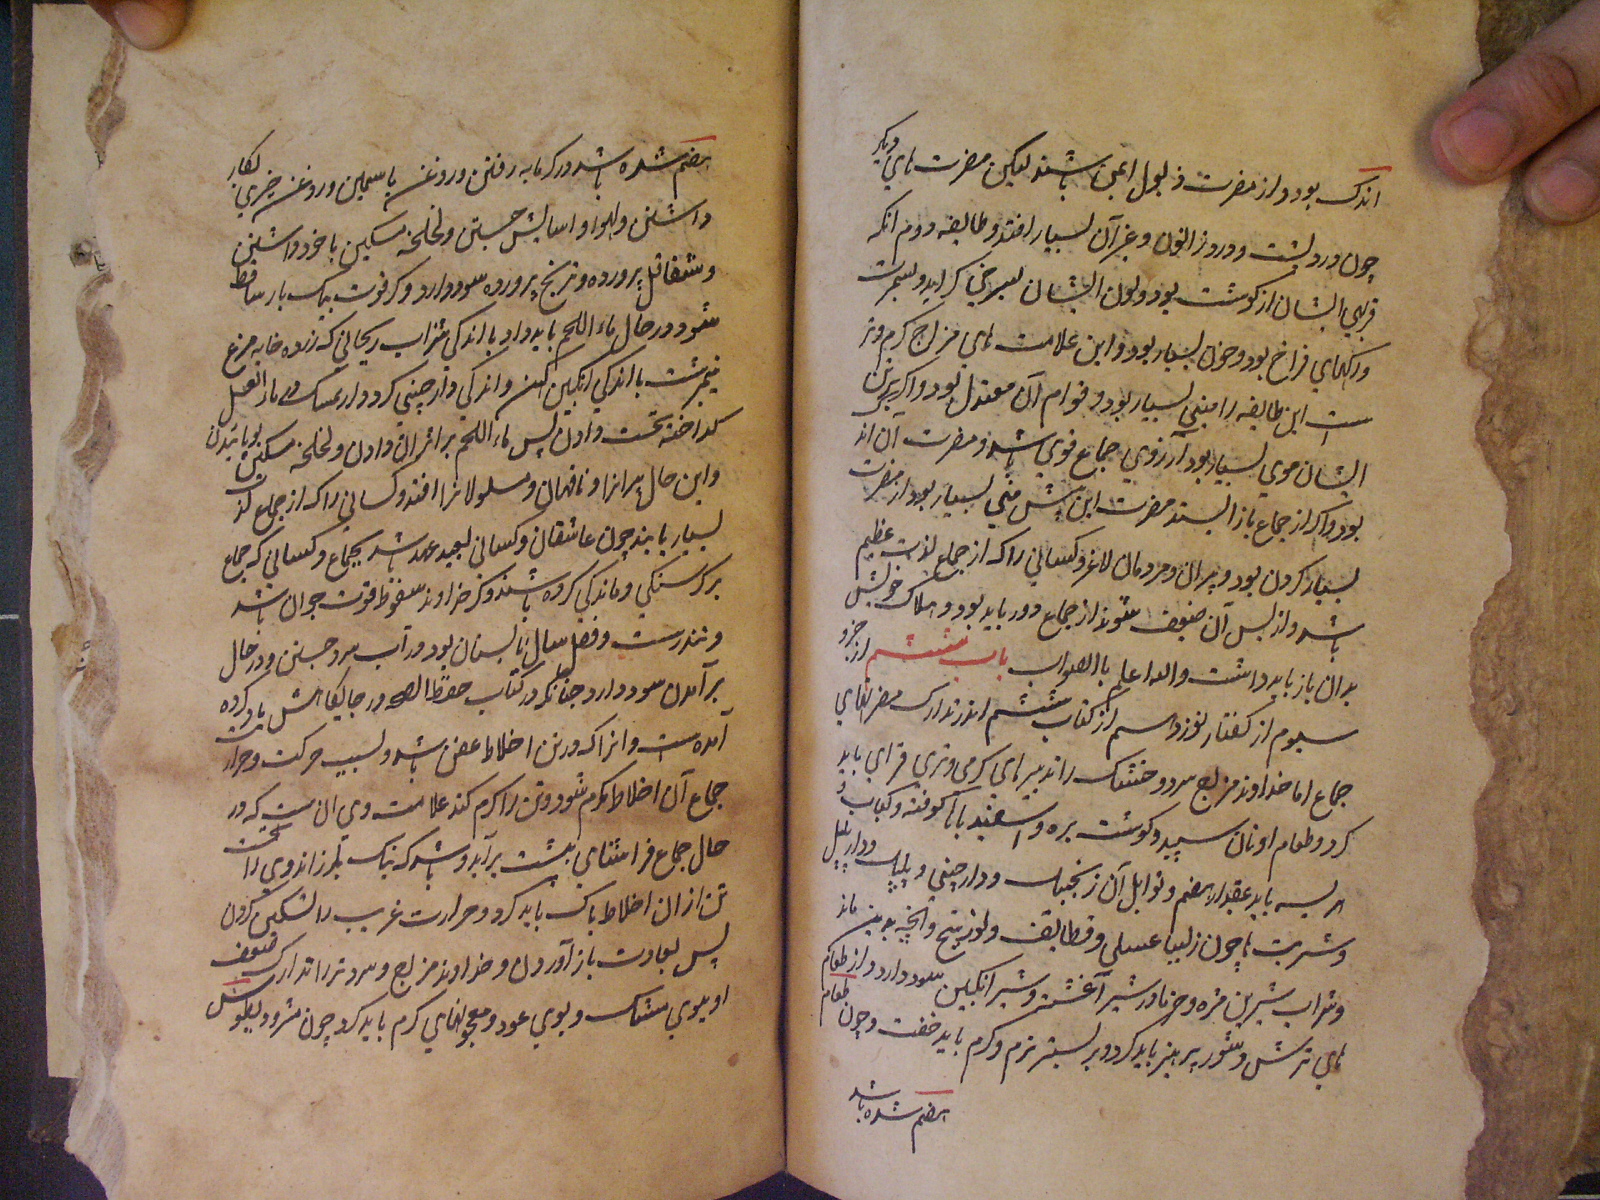 اندک بود و از مضرت ذبول ایمن باشند لیکن مضرت های دیگر
چون درد پشت و درد زانون و غیر آن بسیار افتد و طایفه دوم آنکه
فربهی ایشان از گوشت بود و لون ایشان بسرخی گراید و بشرت
و رگهای فراخ بود و خون بسیار بود و این علامت های مزاج گرم و تر
است این طایفه را منی بسیار بود و قوام آن معتدل بود و اگر بر تن
ایشان موی بسیار بود آرزوی جماع قوی باشد و مضرت آن اند
بود و اگر از جماع باز ایستند مضرت این بیش منی بسیار بود از مضرت
بسیار کردن بود و پیران و مردمان لاغر و کسانی را که از جماع لذت عظیم
باشد و از پس آن ضعیف شوند از جماع دور باید بود و هلاک خویش
بدان باز باید داشت والله اعلم باالصواب باب ششم از جزو
سیوم از گفتار نوزدهم از کتاب ششم اندر تدارک مضرتهای
جماع اما خداوند مزاج سرد و خشک را تدبیرهای گرمی و تری فزای باید
کرد و طعام او نان سپید و گوشت بره و اسفید باآ کوفته و کباب و
هریسه باید بمقدار هضم و توابل آن زنجبیل و دارچینی و پلپل و دارپلپل
و شربت ها چون زلیبا عسلی و قطایف و لوزینج و آنچه بدین ماند
و شراب شیرین مزه و خرما در شیر آغشته و شیر انگبین سود دارد و از طعام
های ترش و شور پرهیز باید کرد و بر بستر نرم و گرم باید خفت و چون طعام
هضم شده باشد
هضم شده باشد در گرمابه رفتن و روغن یاسمین و روغن خیری بکار
داشتن و لهو و اسایش جستن و لخلخه مسکین با خود داشتن
و شقاقل پرورده و ترنج پرورده سود دارد و گر قوت بیک بار ساقط
شود در حال ماء اللحم باید داد با اندکی شراب ریحانی که زرده خایه مرغ
نیمبرشت با اندکی انگبین و اندکی دارچینی کرد و از مسک
گداخته نخست دادن پس ماء اللحم بر اثر آن دادن و لخلخه مسکین بویانیدن
و این حال پیرانرا و ناقهان و مسلولانرا افتد و کسانی را که از جماع لذت
بسیار یابند چون عاشقان و کسانی بعید عهد باشد بجماع و کسانی که جماع
بر گرسنگی و ماندگی کرده باشند و گر خداوند سقوط قوت جوان باشد
و تندرست و فصل سال تابستان بود در آب سرد جستن و در حال
برآمدن سود دارد چنانکه در کتاب حفظ الصحه در جایگاهش یاد کرده
آمده است و انرا که در تن اخلاط عفن باشد و بسبب حرکت و حرارت
جماع آن اخلاط گرم شود و تن را گرم کند علامت وی آن است که در
حال جماع فراشای بپشت برآید و باشد که نیک بلرزاند وی را نخست
تن از ان اخلاط پاک باید کرد و حرارت غریب را تسکین کردن
پس بعادت باز آوردن و خداوند مزاج سرد تر را تدارک ضعف
او ببوی مشک و بوی عود و معجونهای گرم باید کرد چون مثرودیطوس